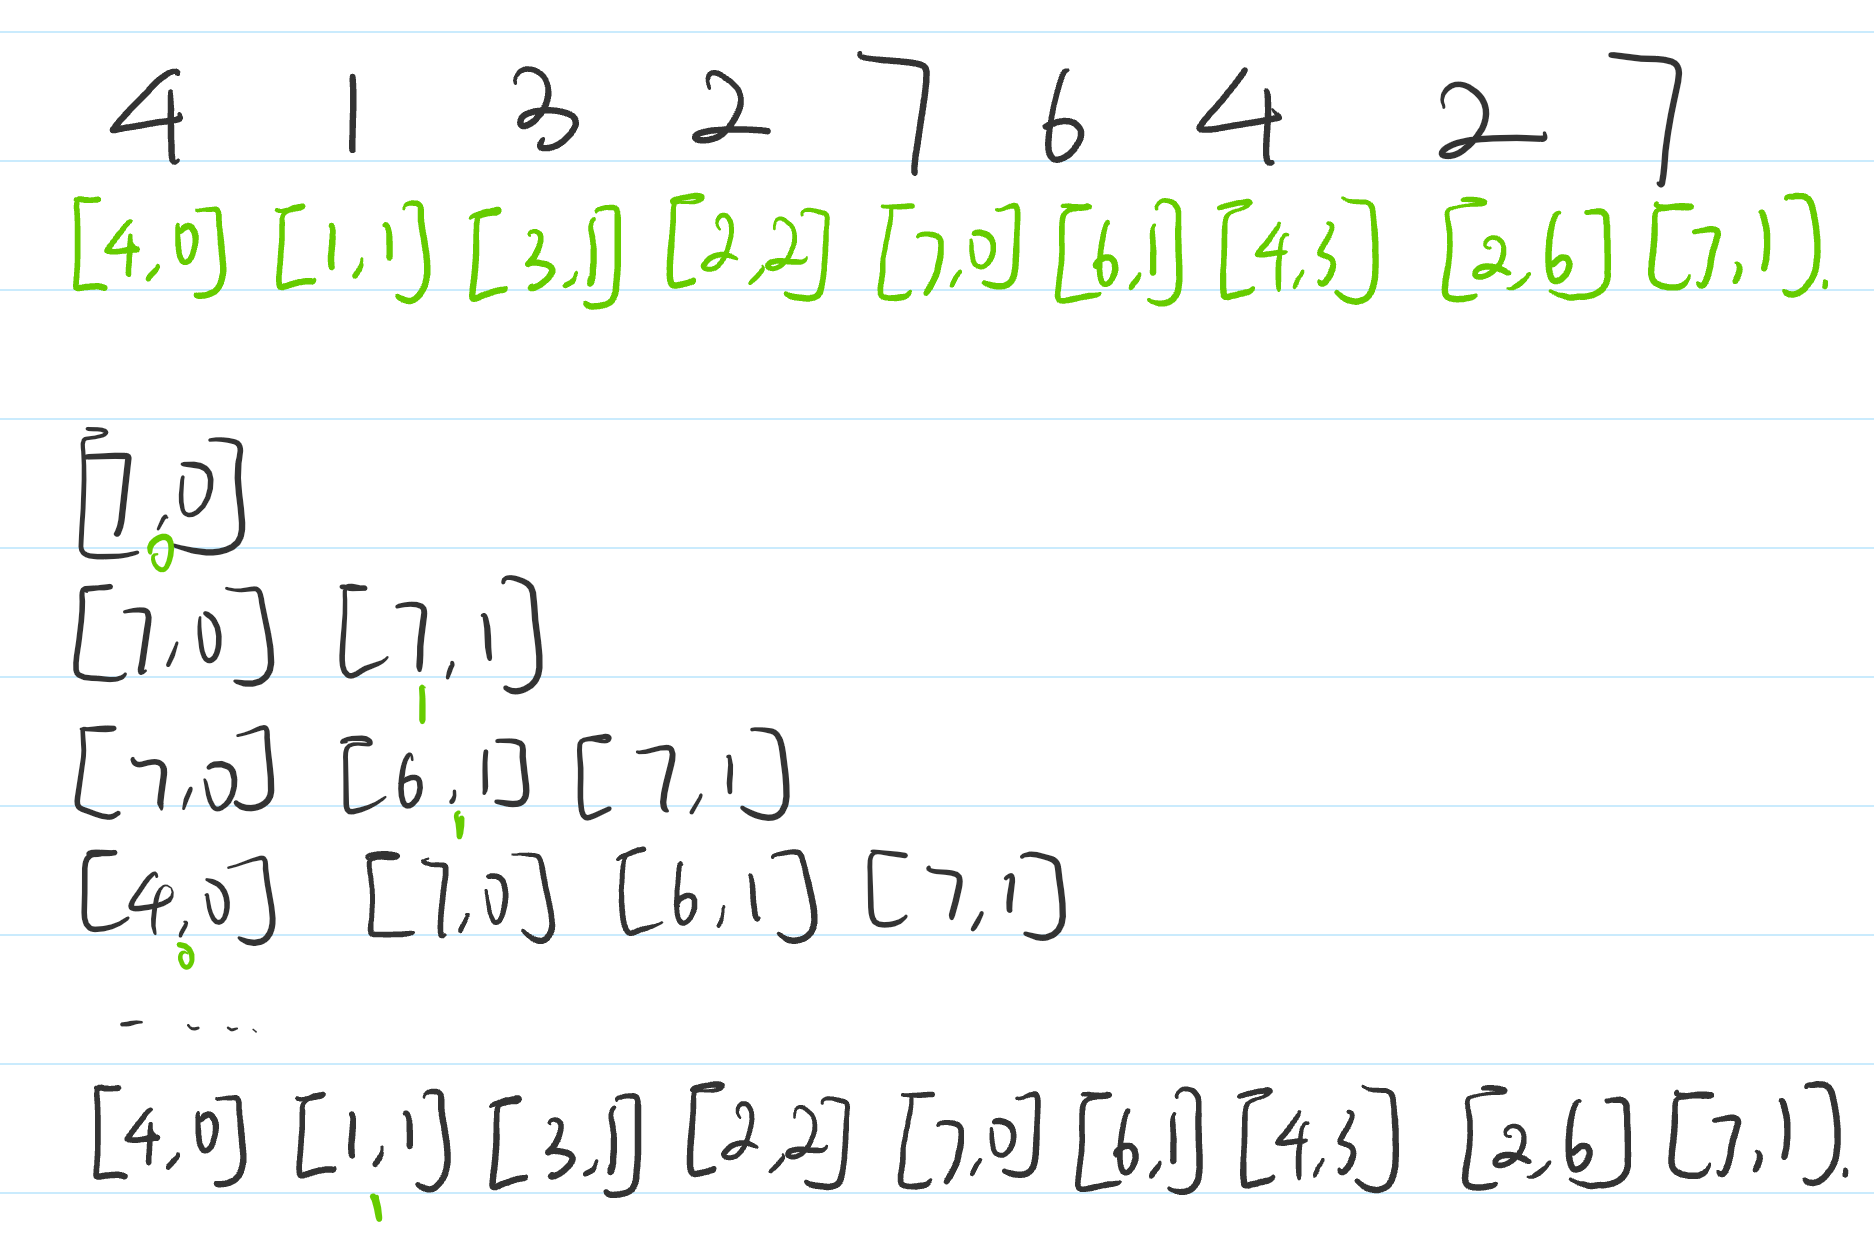 4 1 3 2 7 6 4 2 7
[4,0] [1,1] [3,1] [2,2] [7,0] [6,1] [4,3] [2,6] [7,1].
[7,0]
0
[7,0] [7,1]
1
[7,0] [6,1] [7,1]
1
[4,0] [7,0] [6,1] [7,1]
0
- ....
[4,0] [1,1] [3,1] [2,2] [7,0] [6,1] [4,3] [2,6] [7,1].
1